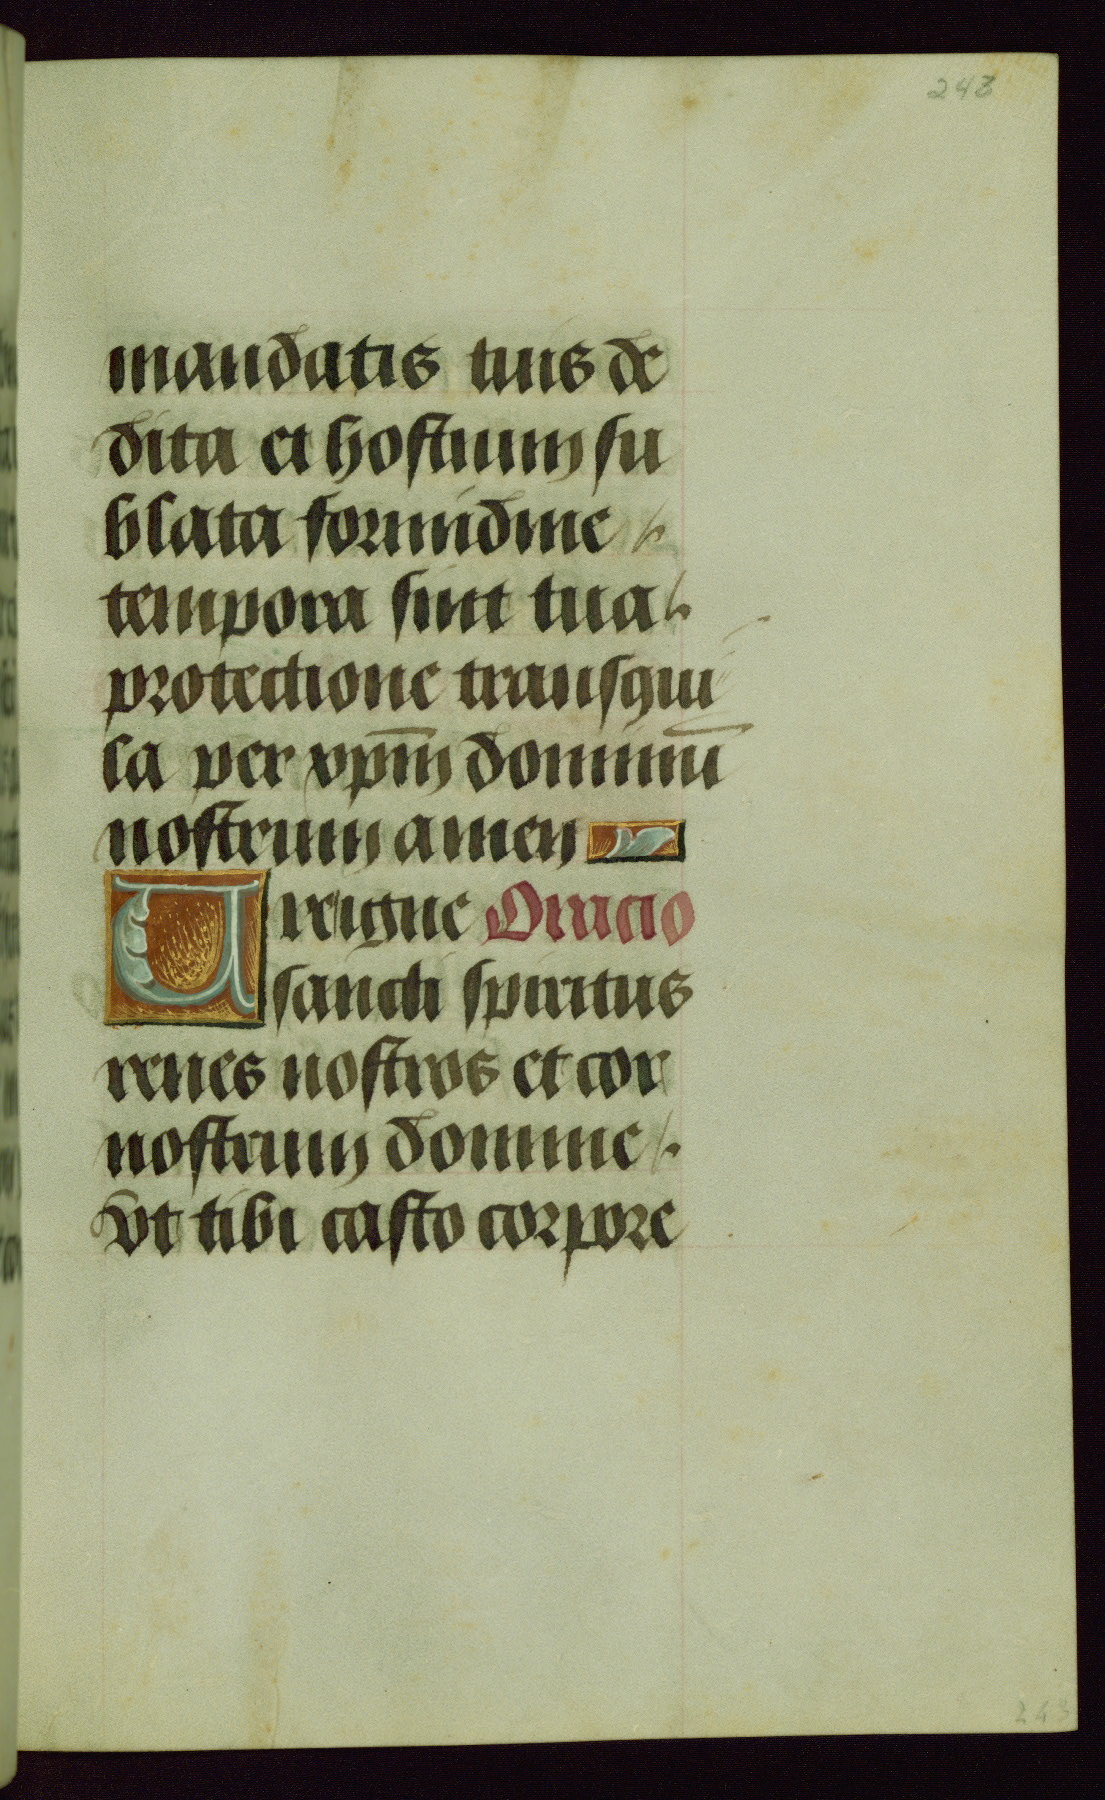 243
mandatis tuis de
dita et hostium su
blata formidine
tempora sint tua
protectione transqui
la per xp̄m dominū
nostrum amen
Ure igne Oracio
sancti spiritus
renes nostros et cor
nostrum domine
Vt tibi casto corpore
243